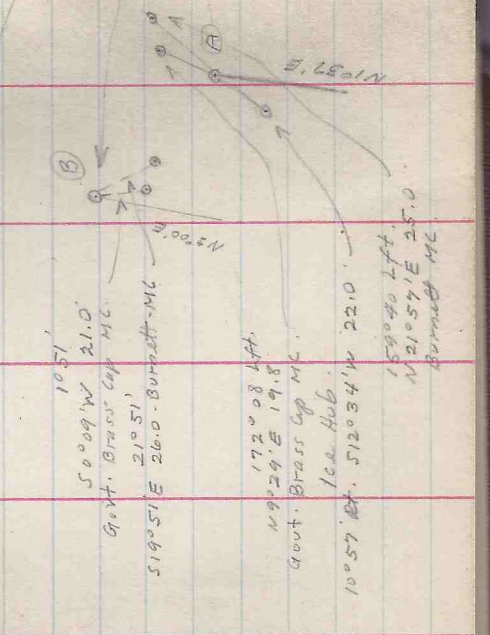 A
N1°37'E
B
N2°00'E
1°51'
S0°09'W 21.0
Govt. Brass Cap MC.
21°51'
S19°51'E 26.0 - Burnett - MC
172°08 Lft.
N9°29'E 19.8
Govt. Brass Cap MC.
Ice Hub.
10°57' Rt. S12°34'W 22.0
159°40 Lft.
N21°57'E 25.0
Burnett MC.